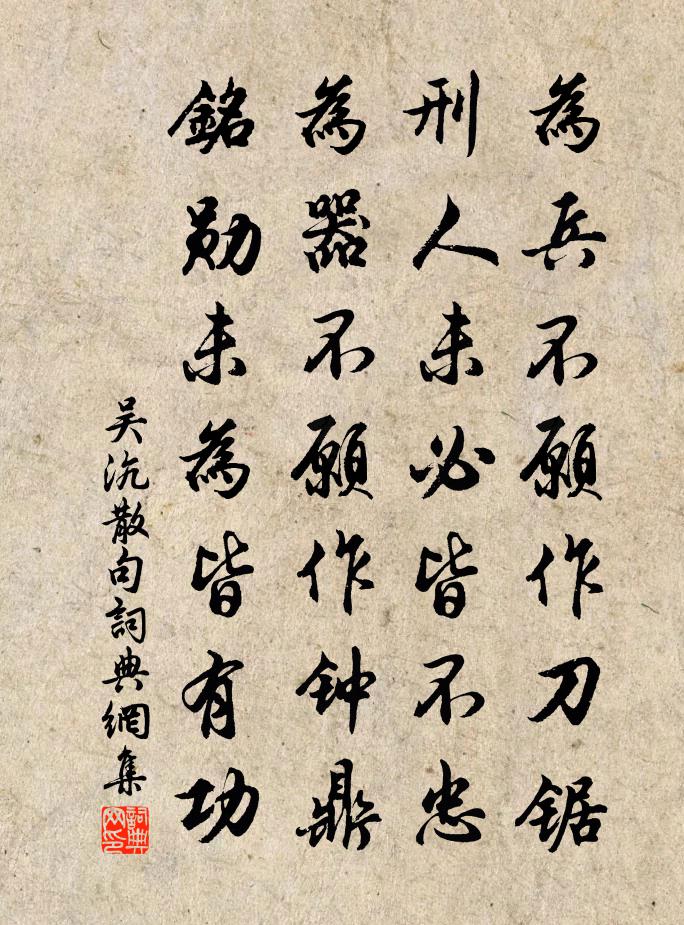 為兵不願作刀锯
刑人未必皆不忠
為器不願作钟鼎
銘勋未為皆有功
吴沆散句詞典網集
詞典网印